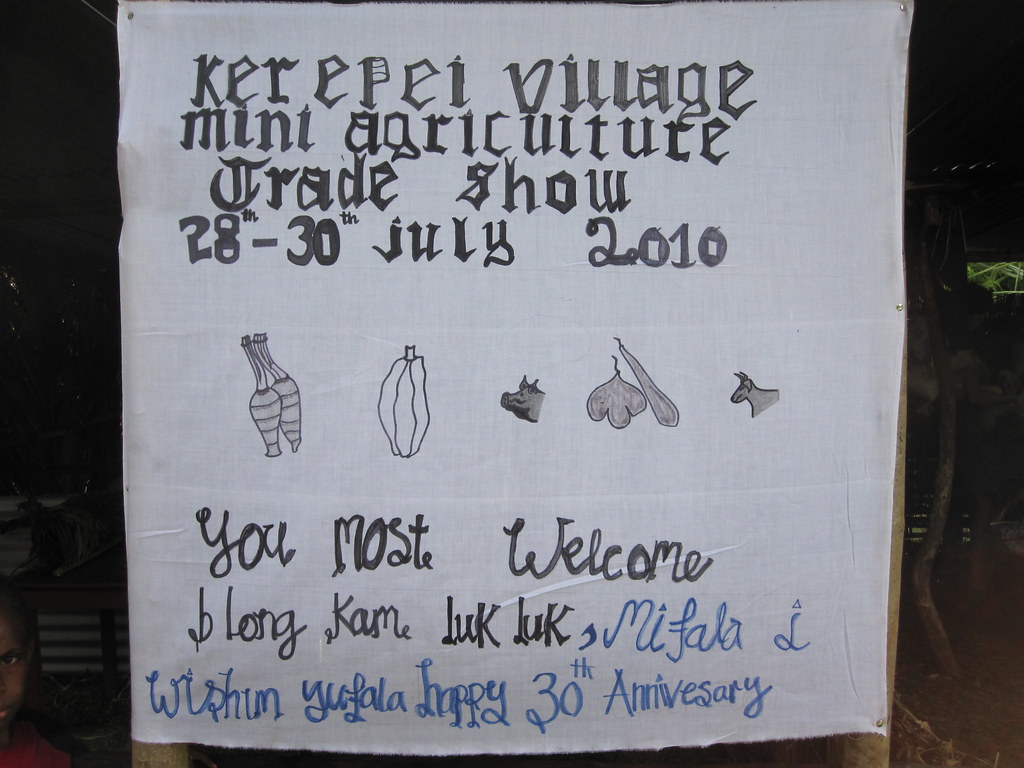 Kerepei Village
mini agriculture
Trade Show
28th - 30th july 2010
You most Welcome
blong kam luk luk, Mifala i
Wishim yufala happy 30th Annivesary